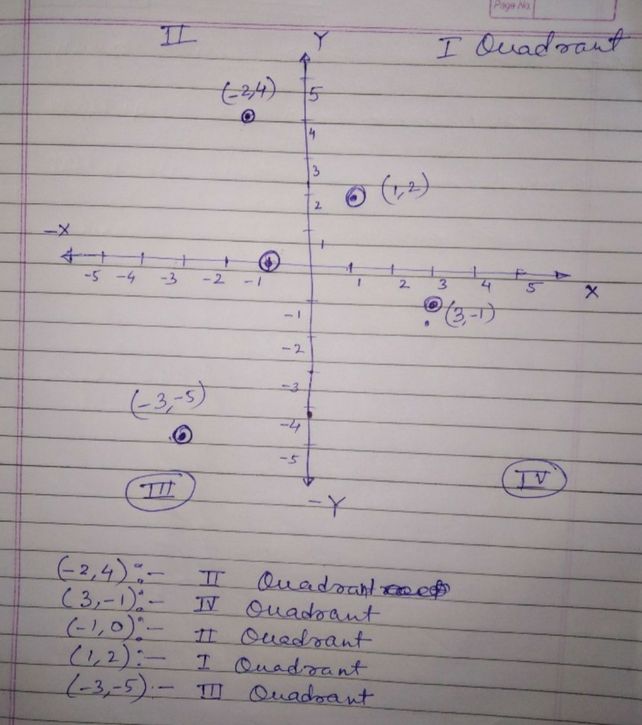 Page No.
II Y I Quadrant
(-2,4) 5
4
3
(1,2)
2
-X 1
-5 -4 -3 -2 -1 1 2 3 4 5 X
-1 (3,-1)
-2
-3
(-3,-5)
-4
-5
III IV
-Y
(-2,4):- II Quadrant
(3,-1):- IV Quadrant
(-1,0):- II Quadrant
(1,2):- I Quadrant
(-3,-5):- III Quadrant